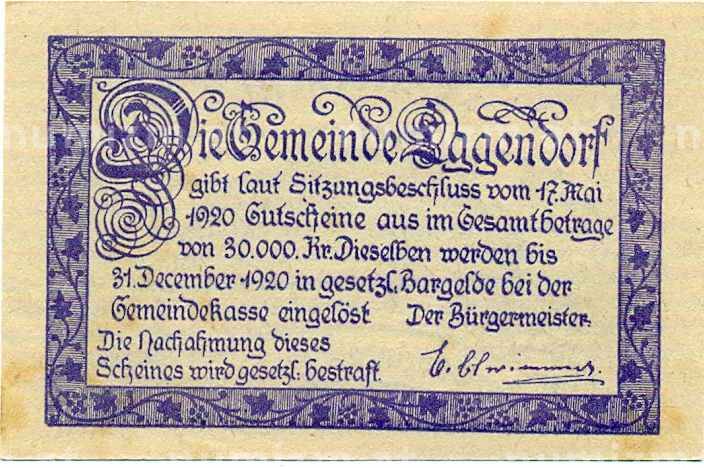 Die Gemeinde Eggendorf
gibt laut Sitzungsbeschluss vom 17. Mai
1920 Gutscheine aus im Gesamtbetrage
von 30.000. Kr. Dieselben werden bis
31. December 1920 in gesetzl. Bargelde bei der
Gemeindekasse eingelöst Der Bürgermeister:
Die Nachahmung dieses
Scheines wird gesetzl. bestraft.